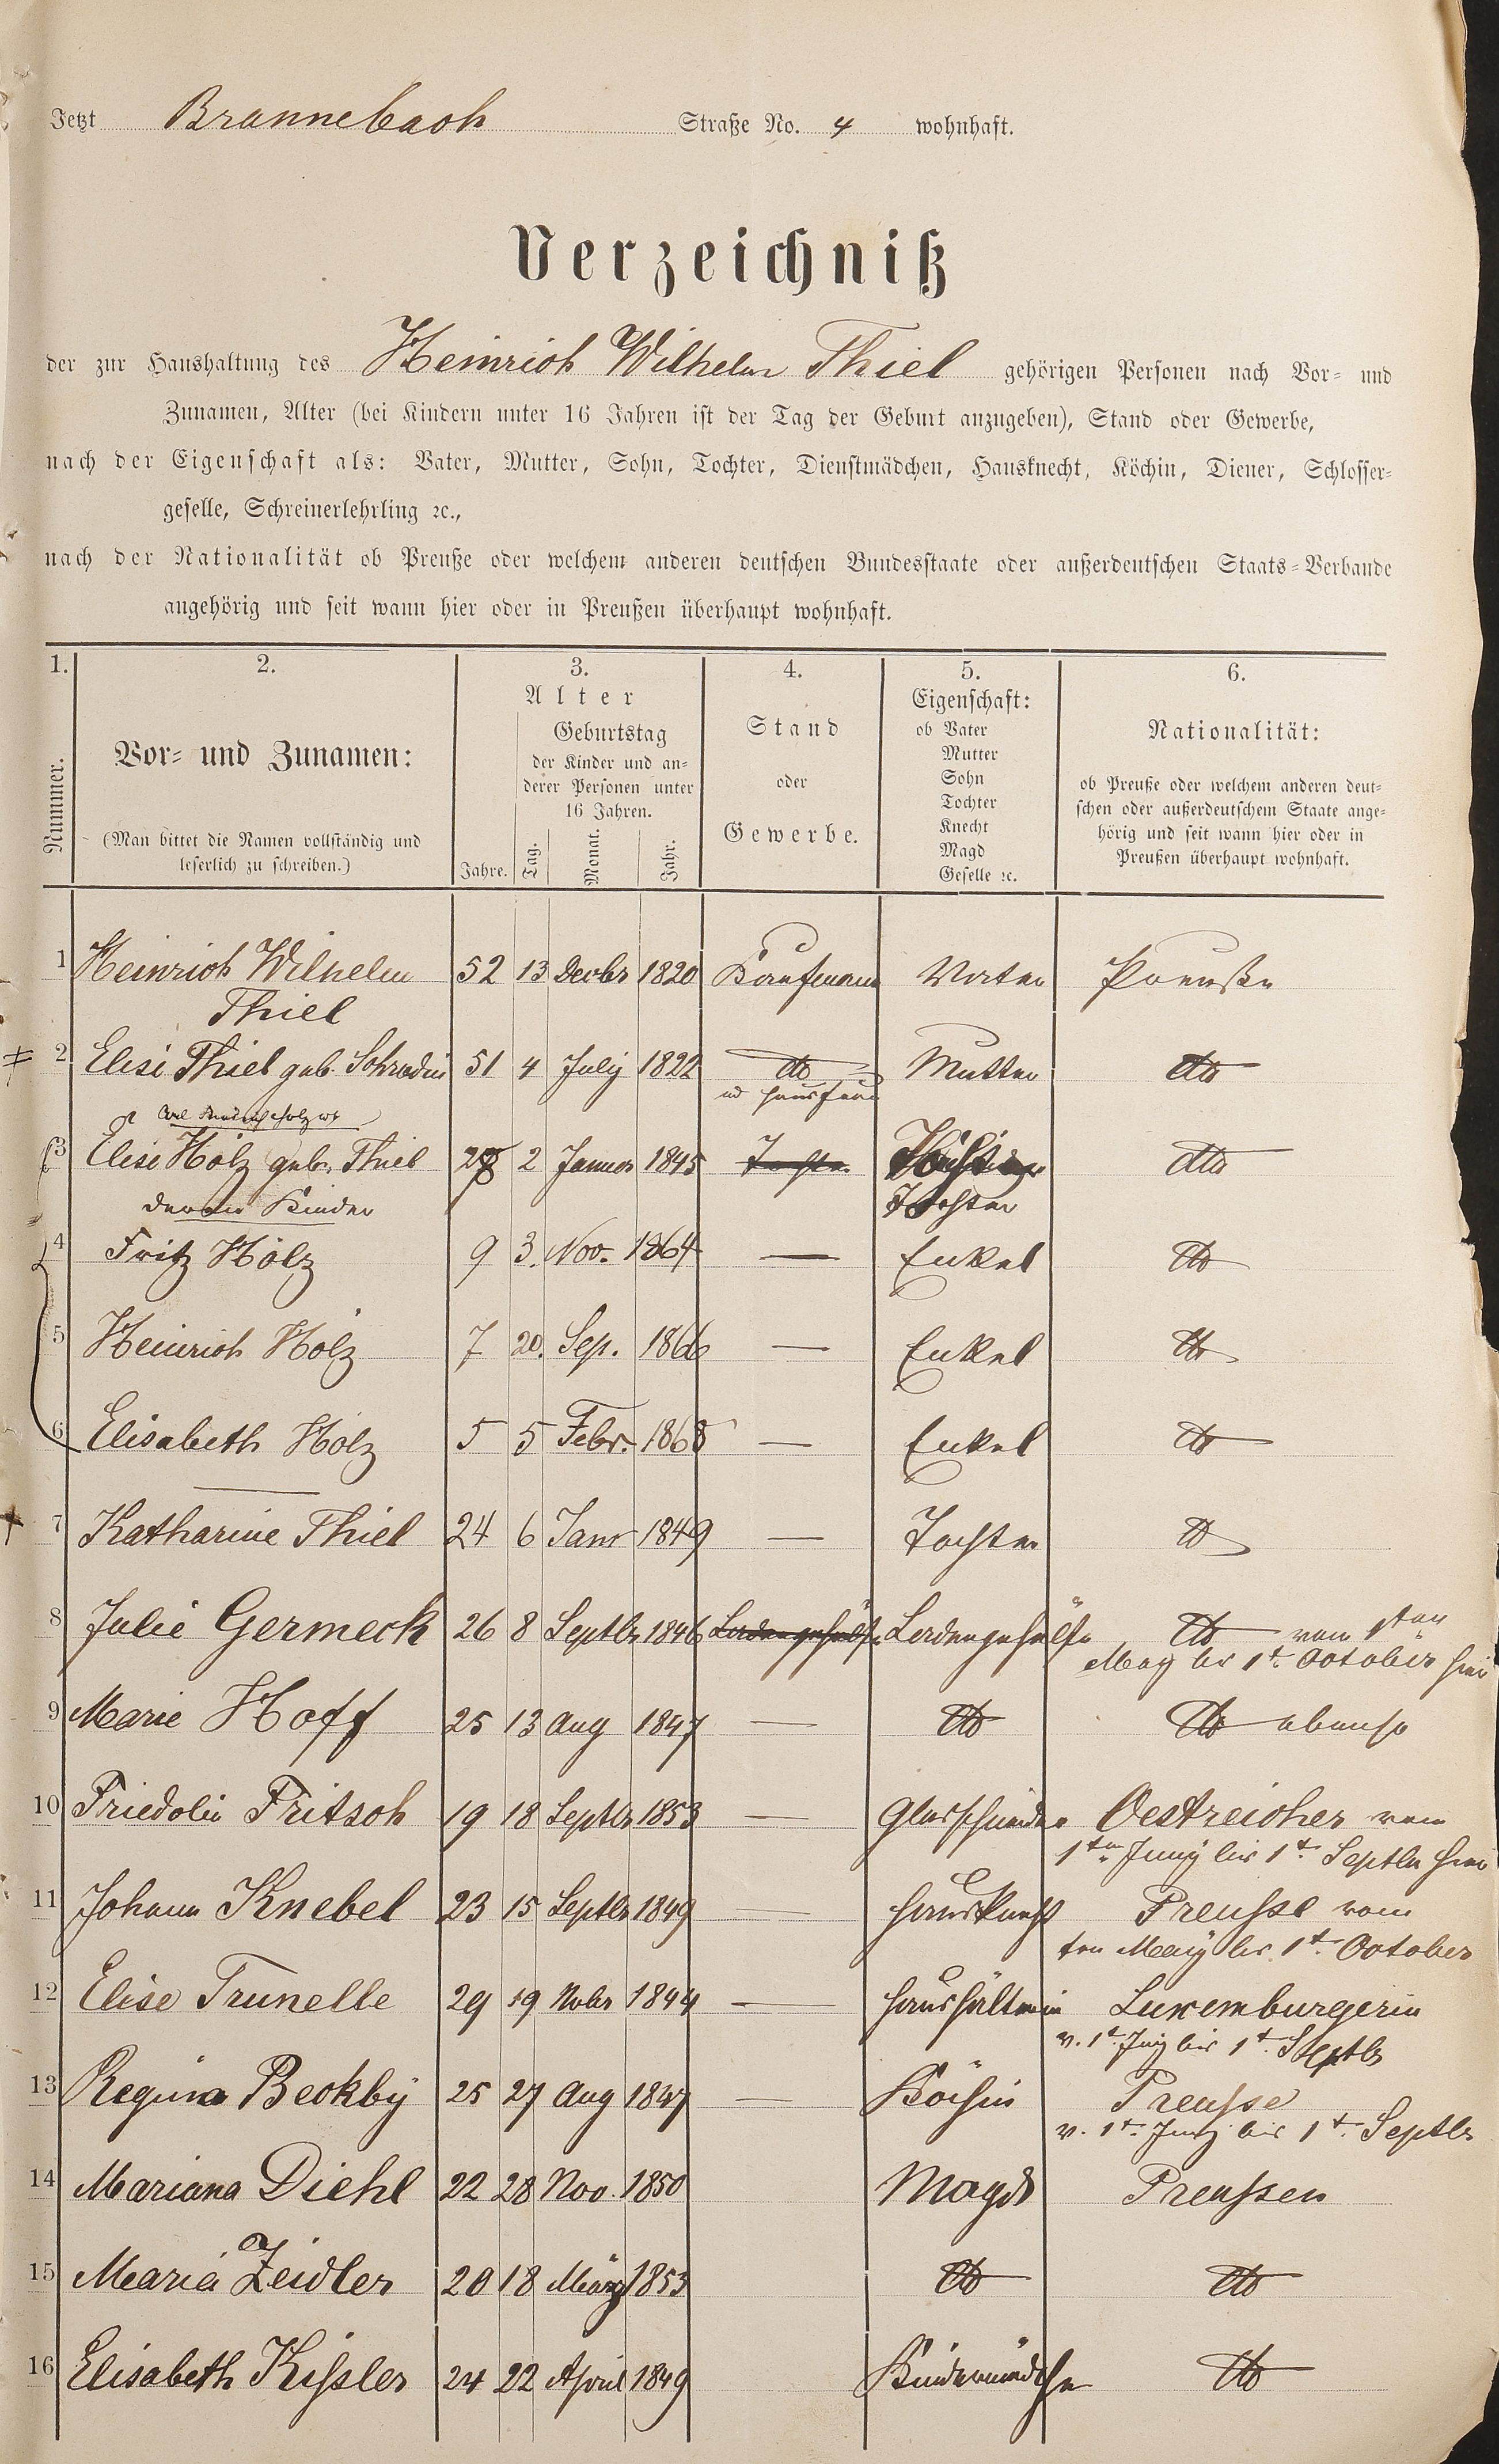 Jetzt Brannebach Straße No. 4 wohnhaft.
Verzeichniß
der zur Haushaltung des Heinrich Wilhelm Thiel gehörigen Personen nach Vor- und
Zunamen, Alter (bei Kindern unter 16 Jahren ist der Tag der Geburt anzugeben), Stand oder Gewerbe,
nach der Eigenschaft als: Vater, Mutter, Sohn, Tochter, Dienstmädchen, Hausknecht, Köchin, Diener, Schlosser-
geselle, Schreinerlehrling ꝛc.,
nach der Nationalität ob Preuße oder welchem anderen deutschen Bundesstaate oder außerdeutschen Staats-Verbande
angehörig und seit wann hier oder in Preußen überhaupt wohnhaft.
1. 2. 3. 4. 5. 6.
Nummer.
Vor- und Zunamen:
(Man bittet die Namen vollständig und
leserlich zu schreiben.)
Alter
Jahre.
Geburtstag
der Kinder und an-
derer Personen unter
16 Jahren.
Tag. Monat. Jahr.
Stand
oder
Gewerbe.
Eigenschaft:
ob Vater
Mutter
Sohn
Tochter
Knecht
Magd
Geselle ꝛc.
Nationalität:
ob Preuße oder welchem anderen deut-
schen oder außerdeutschem Staate ange-
hörig und seit wann hier oder in
Preußen überhaupt wohnhaft.
1 Heinrich Wilhelm 52 13 Decbr 1820 Kaufmann Vater Preuße
Thiel
2 Elise Thiel geb. Schradin 51 4 July 1822 dto Mutter dto
u Hausfrau
3 Elise Hölz geb. Thiel 28 2 Januar 1845 Tochter dto
Tochter
deren Kinder
4 Fritz Hölz 9 3. Nov. 1864 — Enkel dto
5 Heinrich Hölz 7 20. Sep. 1866 — Enkel dto
6 Elisabeth Hölz 5 5 Febr. 1868 — Enkel dto
7 Katharine Thiel 24 6 Janr 1849 — Tochter dto
8 Julie Germeck 26 8 Septbr 1846 Ladengehülfin Ladengehülfin dto vom 1ten
May bis 1t. October hier
9 Marie Hoff 25 13 Aug 1847 — dto dto ebenso
10 Friedolin Fritsch 19 18 Septbr 1853 — Glasschneider Oestreicher vom
1ten Juny bis 1t. Septbr hier
11 Johann Knebel 23 15 Septbr 1849 — Hausknecht Preusse vom
ten May bis 1t. October
12 Elise Trunelle 29 19 Nobr 1844 — Haushälterin Luxemburgerin
v. 1t. Juny bis 1t. Septbr
13 Regina Beckby 25 27 Aug 1847 — Köchin Preusse
v. 1t. Juny bis 1t. Septbr
14 Mariana Diehl 22 28 Nov. 1850 Magd Preussen
15 Maria Zeidler 20 18 März 1853 dto dto
16 Elisabeth Kissler 24 22 April 1849 Kindermädchen dto